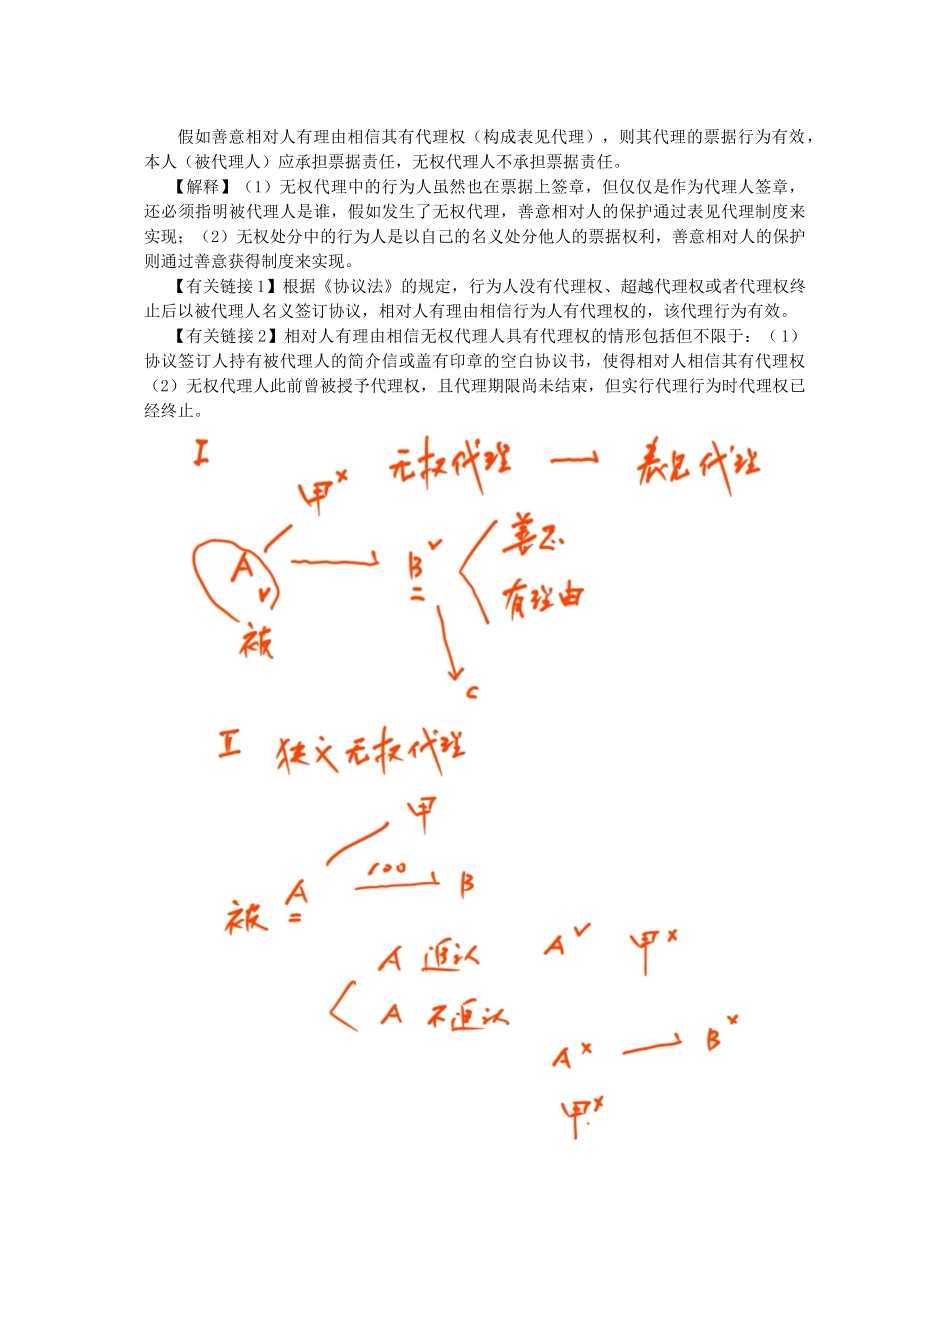 假如善意相对人有理由相信其有代理权（构成表见代理），则其代理的票据行为有效，
本人（被代理人）应承担票据责任，无权代理人不承担票据责任。
【解释】（1）无权代理中的行为人虽然也在票据上签章，但仅仅是作为代理人签章，
还必须指明被代理人是谁，假如发生了无权代理，善意相对人的保护通过表见代理制度来
实现；（2）无权处分中的行为人是以自己的名义处分他人的票据权利，善意相对人的保护
则通过善意获得制度来实现。
【有关链接 1】根据《协议法》的规定，行为人没有代理权、超越代理权或者代理权终
止后以被代理人名义签订协议，相对人有理由相信行为人有代理权的，该代理行为有效。
【有关链接 2】相对人有理由相信无权代理人具有代理权的情形包括但不限于：（1）
协议签订人持有被代理人的简介信或盖有印章的空白协议书，使得相对人相信其有代理权
（2）无权代理人此前曾被授予代理权，且代理期限尚未结束，但实行代理行为时代理权已
经终止。
I 无权代理 → 表见代理
甲×
A√ → B√ 善意
有理由
被
C
II 狭义无权代理
甲
100
被 A → B
A 追认 A√ 甲×
A 不追认
A× → B×
甲×